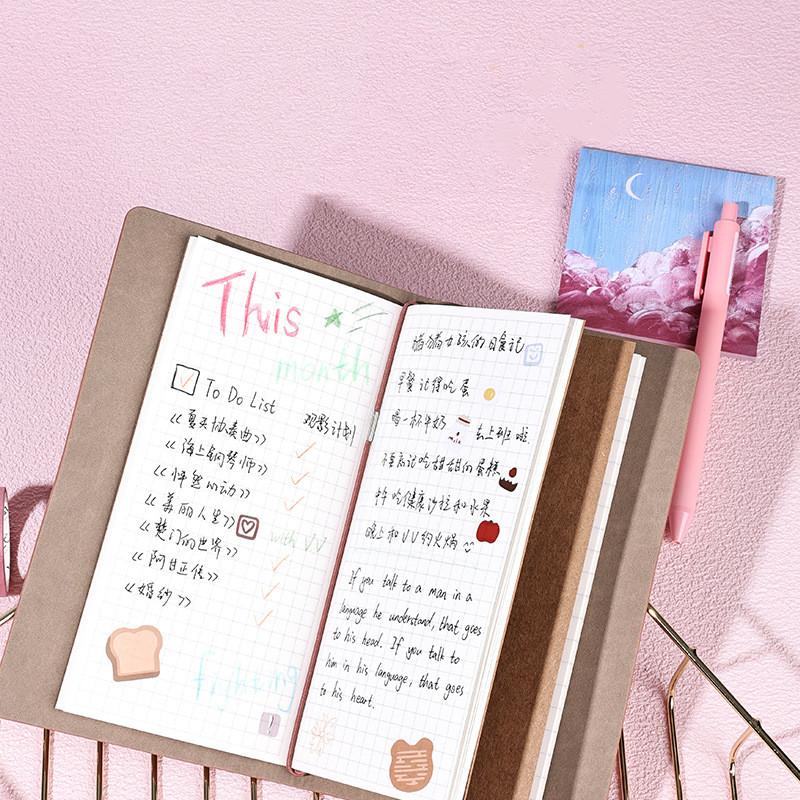 This
month
To Do List
观影计划
《夏天协奏曲》
《海上钢琴师》
《怦然心动》
《美丽人生》
with VV
《楚门的世界》
《阿甘正传》
《婚纱》
fighting
女孩的日食记
早餐记得吃蛋
喝一杯牛奶 去上班啦
不要忘记吃甜甜的蛋糕
中午吃健康沙拉和水果
晚上和VV约火锅
If you talk to a man in a
language he understand, that goes
to his head. If you talk to
him in his language, that goes
to his heart.